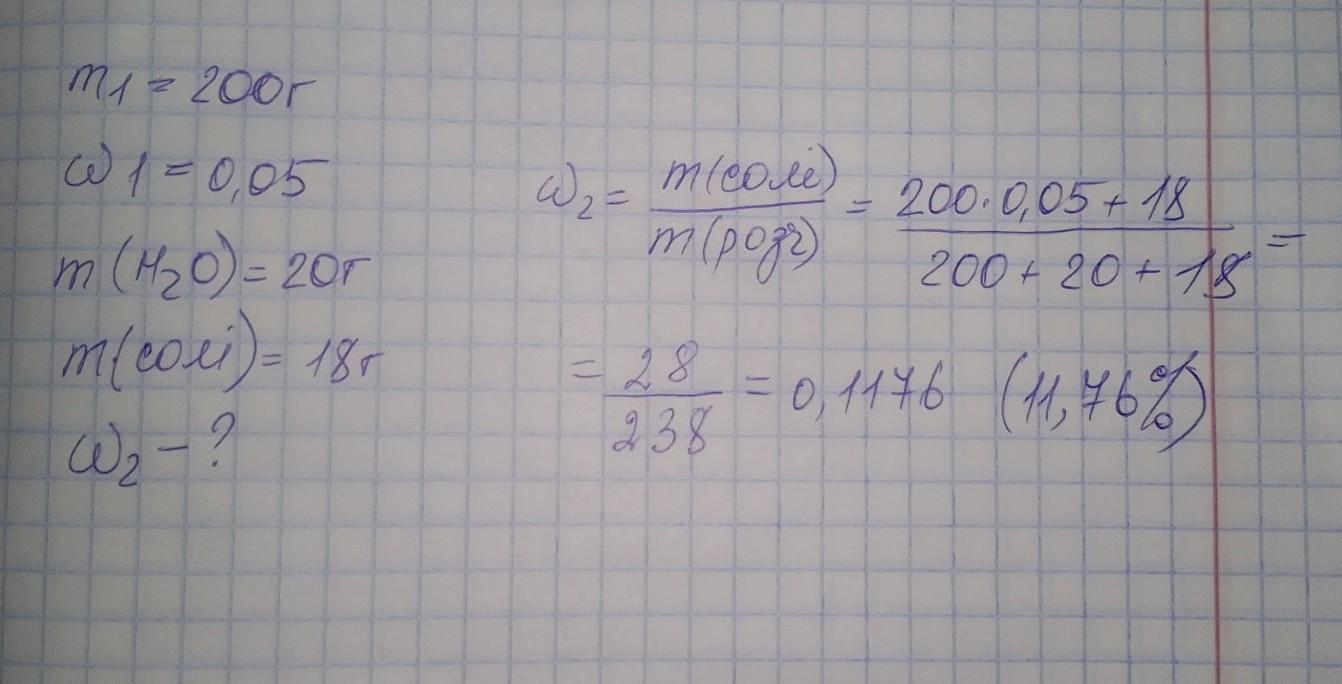 m1 = 200г
ω1 = 0,05
m(H₂O) = 20г
m(солі) = 18г
ω₂ - ?
ω₂ = m(солі) / m(розч) = 200·0,05 + 18 / 200 + 20 + 18 =
= 28 / 238 = 0,1176 (11,76%)